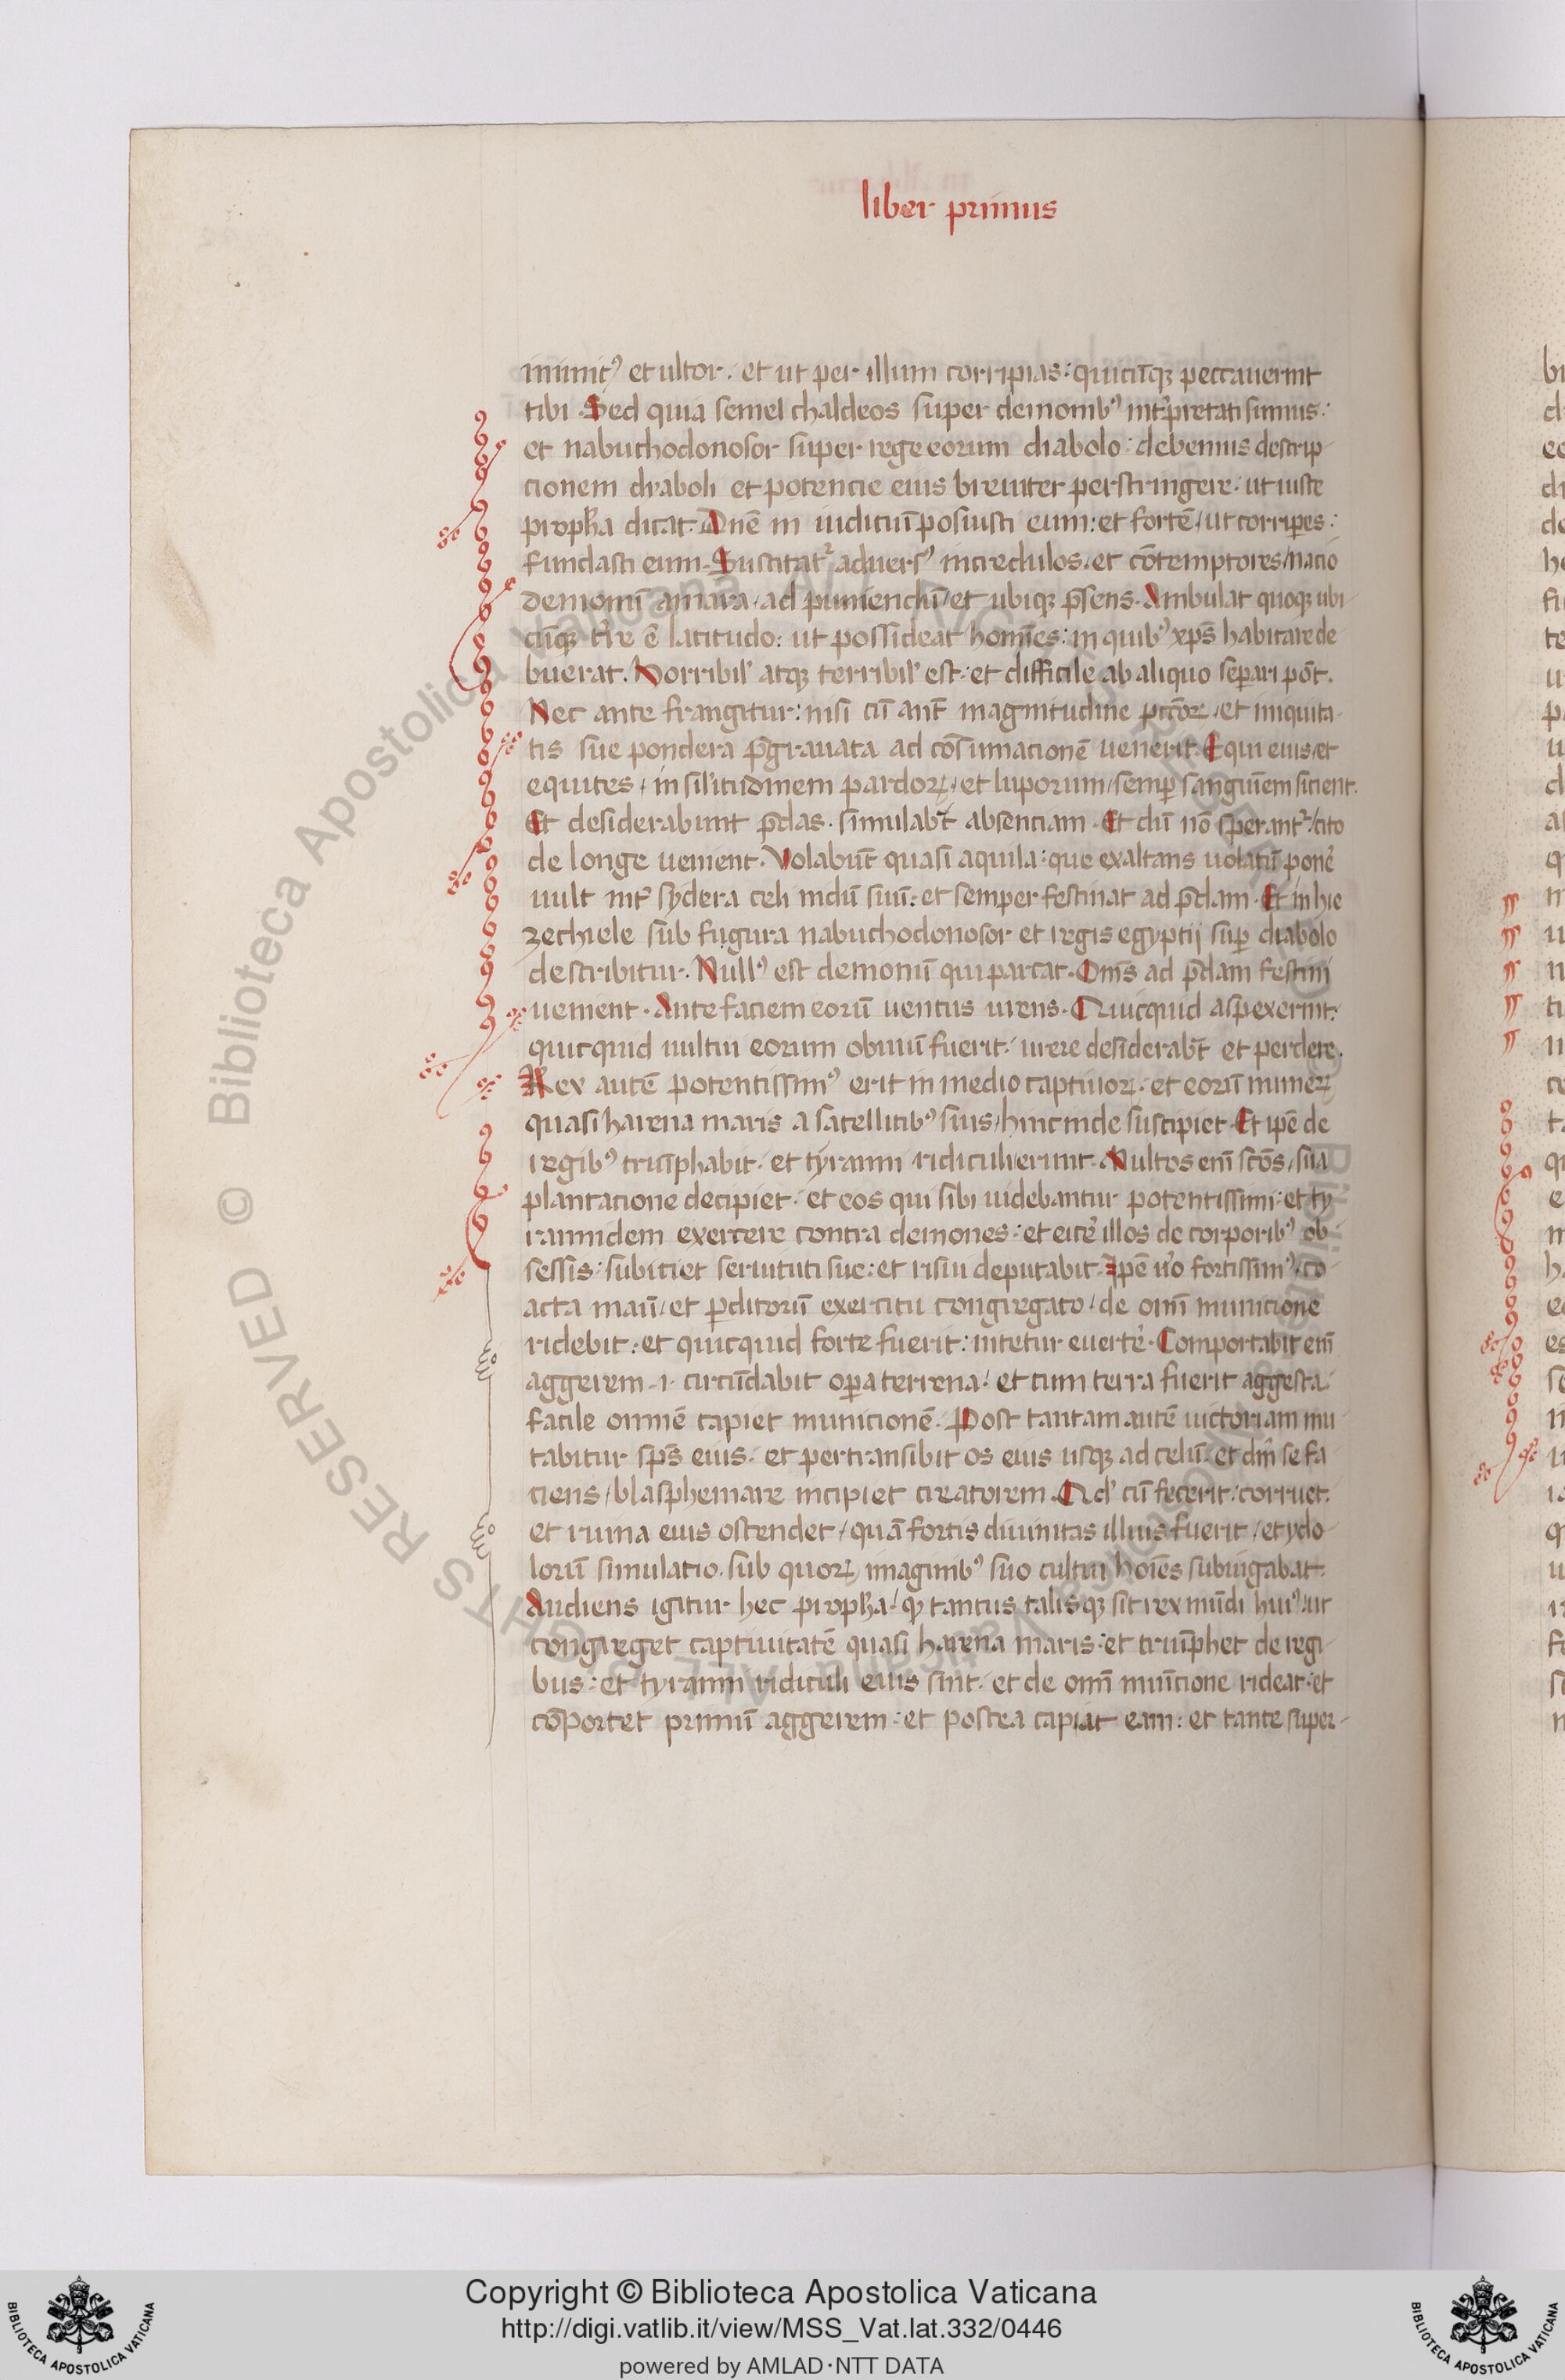 liber primus
inimicꝰ et ultor. et ut per illum corripias: quicūqꝫ peccauerint
tibi. Sed quia semel chaldeos super demonibꝰ int̓pretati sumus:
et nabuchodonosor super rege eorum diabolo: debemus descrip-
cionem diaboli et potencie eius breuiter perstringere. ut iuste
propħa dicat. Dn̄e in iudiciū posuisti eum: et fortē/ut corriꝑes:
fundasti eum. Suscitat᷑ aduersꝰ incredulos. et cōtemptores/nacio
demonū amara/ad puniendū/et ubiqꝫ p̄sens. Ambulat quoqꝫ ubi-
cūqꝫ t̓re ē latitudo: ut possideat homīes: in quibꝰ xp̄s habitare de
buerat. Horribil̓ atqꝫ terribil̓ est. et difficile ab aliquo seꝑari pōt.
Nec ante frangitur: nisi cū ant̄ magnitudine pc̄cōꝝ/et iniquita-
tis sue pondera p̄grauata ad cōsumacionē uenerit. Equi eius/et
equites/in sil̓itudinem pardoꝝ/et luporum/semꝑ sanguīem sicient.
Et desiderabunt p̄das. simulabt̄ absenciam. Et dū nō sperant᷑/cito
de longe uenient. Volabūt quasi aquila: que exaltans uolatū pone̓
uult int̓ sydera celi nidū suū: et semper festinat ad p̄dam. Et in hie
zechiele sub fugura nabuchodonosor et regis egyptij suꝑ diabolo
describitur. Nullꝰ est demoniū qui parcat. Om̄s ad p̄dam festini
uenient. Ante faciem eorū uentus urens. Quicquid aspexerint:
quicquid uultui eorum obuiū fuerit/ urere desiderabt̄ et perdere.
Rex autē potentissimꝰ erit in medio captiuoꝝ. et eorū numeꝝ
quasi harena maris a satellitibꝰ suis/hinc inde suscipiet. Et ipē de
regibꝰ triūphabit. et tyranni ridiculi erunt. Multos enī sc̄ōs/sua
plantacione decipiet. et eos qui sibi uidebantur potentissimi: et ty
rannidem exercere contra demones: et eice̓ illos de corporibꝰ ob-
sessis: subiciet seruituti sue: et risui deputabit. Ipē u̓o fortissimꝰ/co-
acta manū/et ꝑditorū exercitu congregato/de om̄i municione
ridebit: et quicquid forte fuerit: nitetur euerte̓. Comportabit enī
aggerem .i. circūdabit oꝑa terrena/ et cum terra fuerit aggesta/
facile omnē capiet municionē. Post tantam autē uictoriam mu
tabitur sp̄s eius. et pertransibit os eius usqꝫ ad celū. et dm̄ se fa
ciens/blasphemare incipiet creatorem. Qd̓ cū fecerit: corruet.
et ruina eius ostendet/quā fortis diuinitas illius fuerit/et ydo
lorū simulatio. sub quoꝝ imaginibꝰ suo cultui hoīes subiugabat.
Audiens igitur hec propħa/ꝙ tantus talisqꝫ sit rex mūdi huiꝰ/ut
congreget captiuitatē quasi harena maris: et triūphet de regi-
bus: et tyranni ridiculi eius sint. et de om̄i mūicione rideat: et
cōportet primū aggerem: et postea capiat eam: et tante super-
Copyright © Biblioteca Apostolica Vaticana
http://digi.vatlib.it/view/MSS_Vat.lat.332/0446
powered by AMLAD·NTT DATA